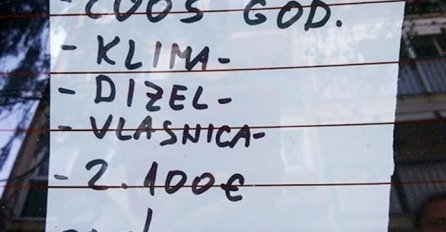 - 2005 GOD.
- KLIMA-
- DIZEL-
- VLASNICA-
- 2.100€